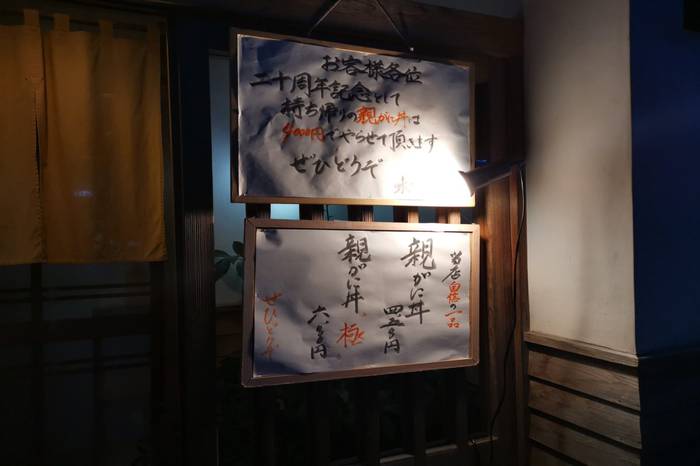 お客様各位
二十周年記念として
持ち帰りの親がに丼は
4000円でやらせて頂きます
ぜひどうぞ
当店自信の一品
親がに丼
四、五〇〇円
親がに丼 極
ぜひどうぞ